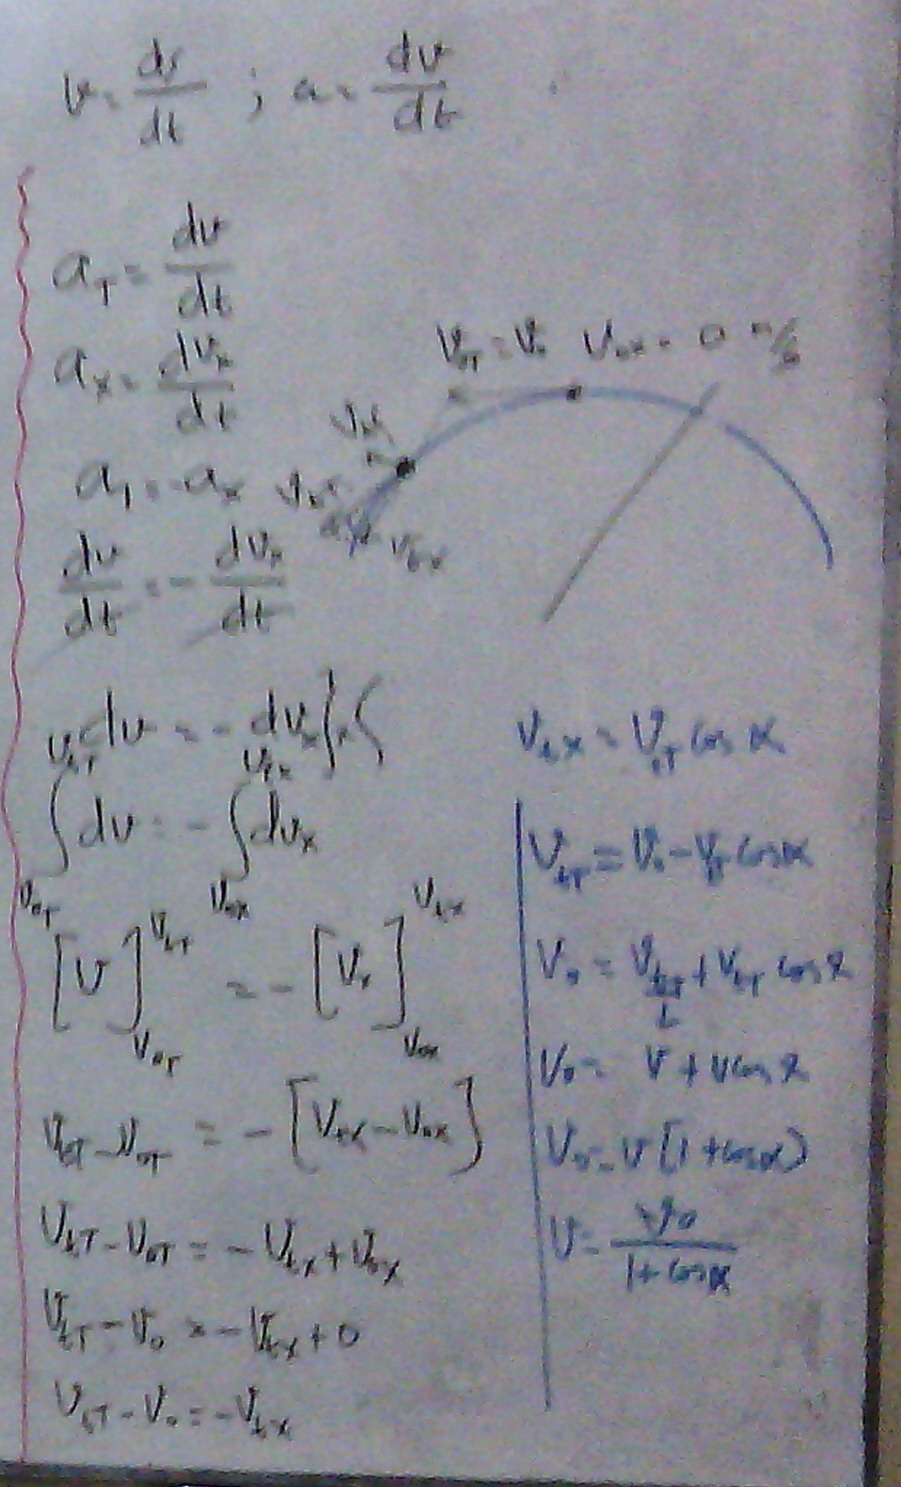 v = dr/dt ; a = dv/dt
a_T = dv/dt
a_x = dv_x/dt
a_T = -a_x
dv/dt = - dv_x/dt
dv = - dv_x
∫_{v_{0T}}^{v_{tT}} dv = - ∫_{v_{0x}}^{v_{tx}} dv_x
[v]_{v_{0T}}^{v_{tT}} = - [v_x]_{v_{0x}}^{v_{tx}}
v_{tT} - v_{0T} = - [v_{tx} - v_{0x}]
v_{tT} - v_{0T} = - v_{tx} + v_{0x}
v_{tT} - v_0 = - v_{tx} + 0
v_{tT} - v_0 = - v_{tx}
v_{0T} = v_0 v_{0x} = 0 m/s
v_{tx}
v_{tx} = v_{tT} cos α
v_{tT} = v_0 - v_{tT} cos α
v_0 = v_{tT} + v_{tT} cos α
v_0 = v + v cos α
v_0 = v (1 + cos α)
v = v_0/(1 + cos α)